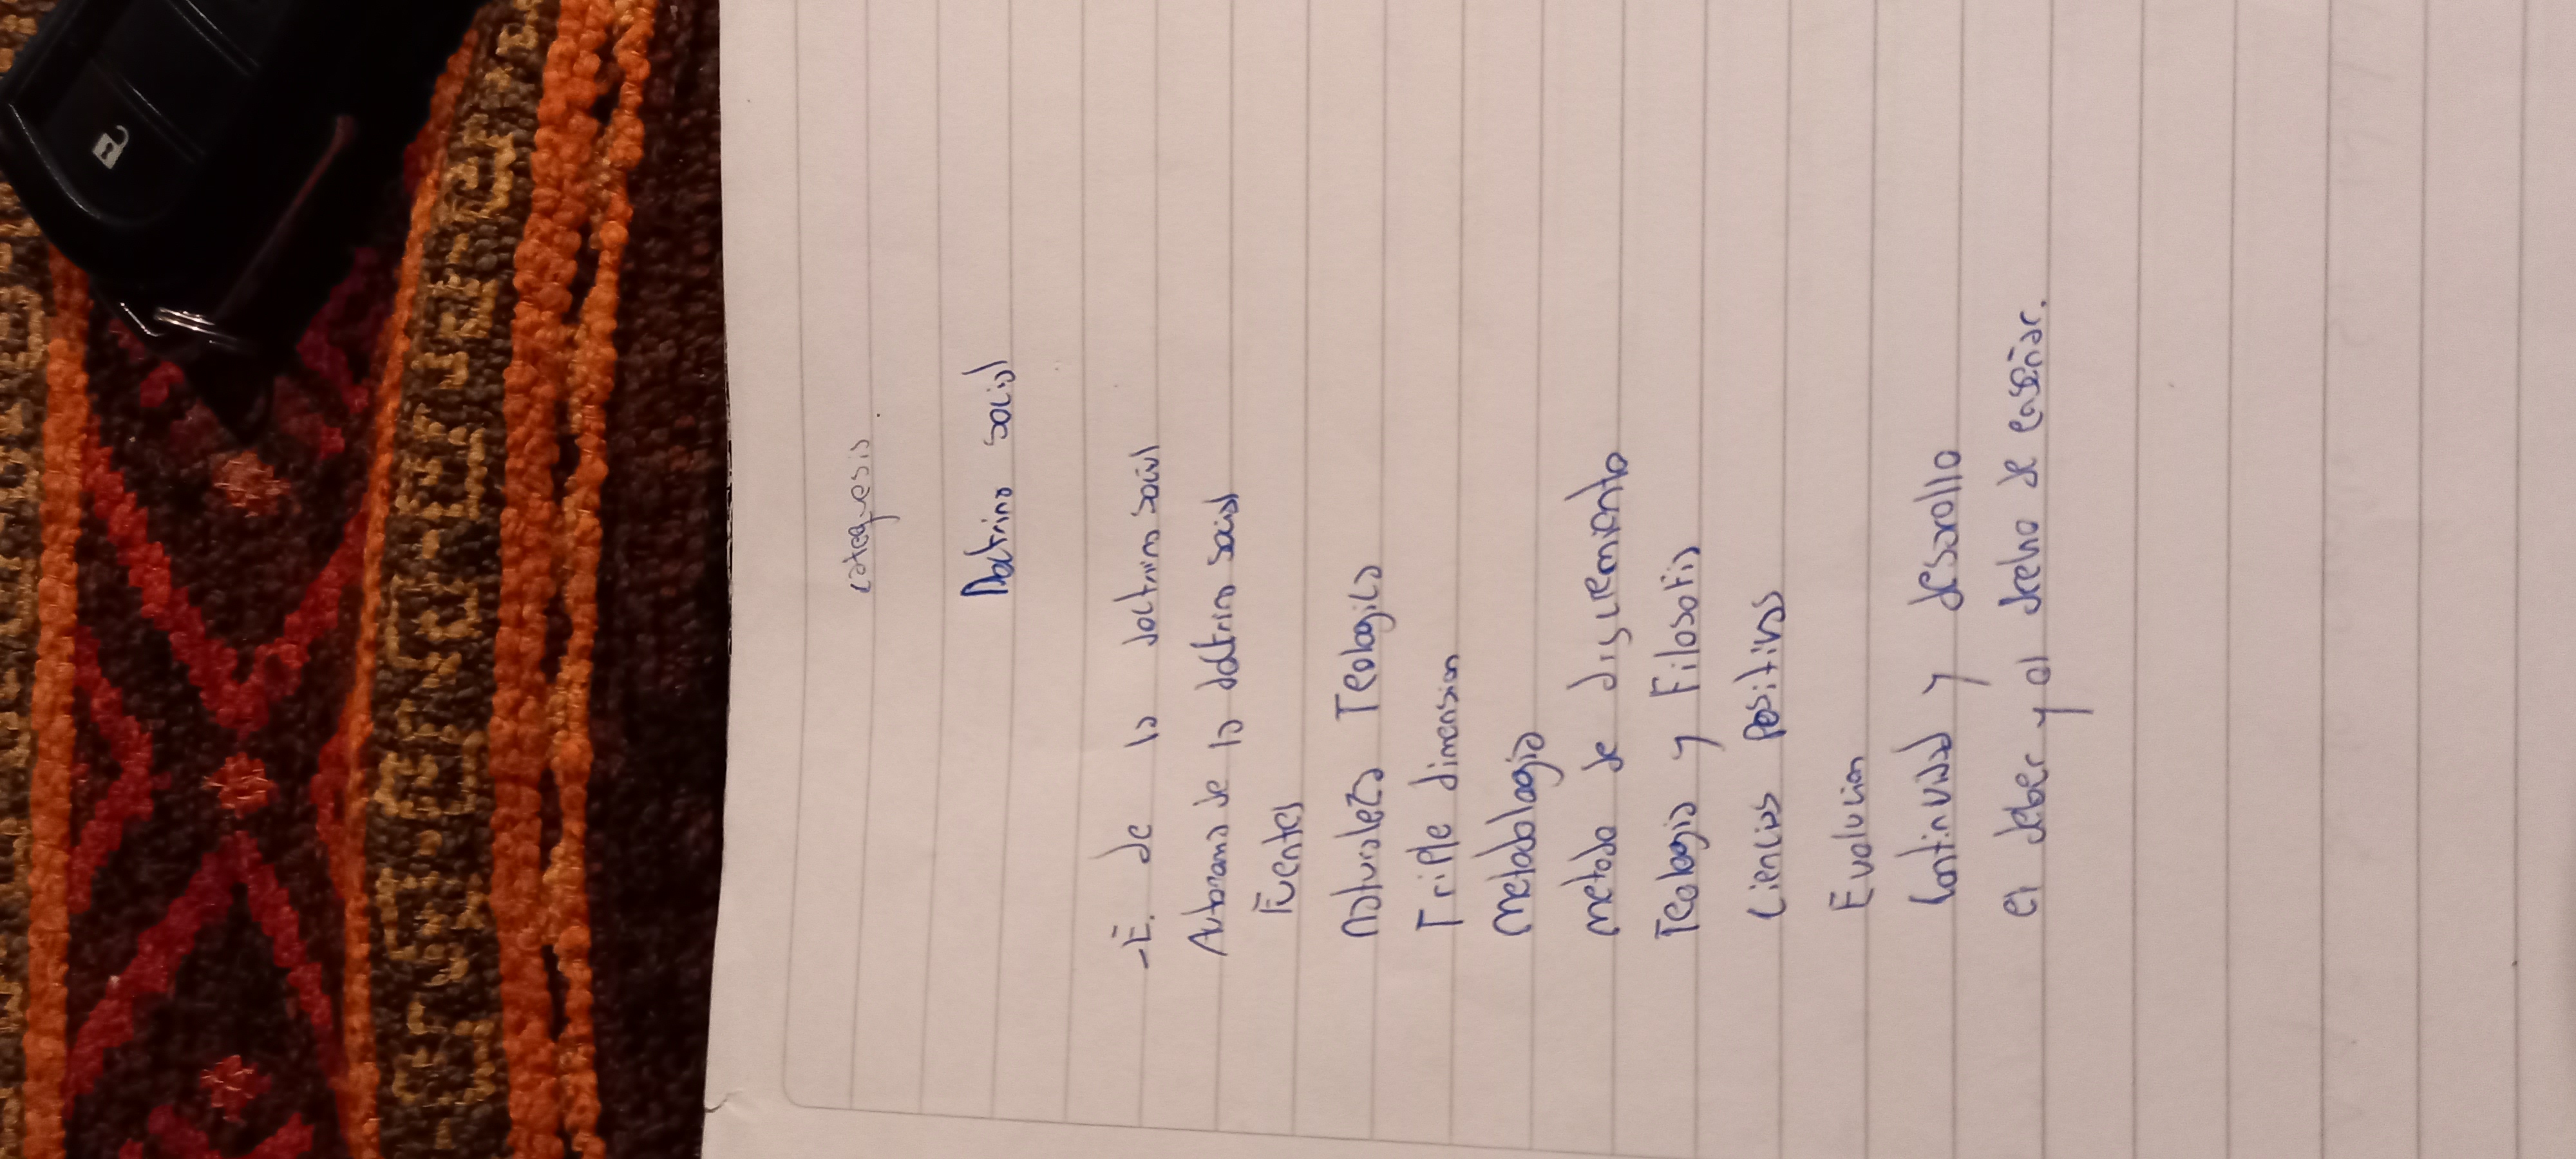 catequesis
Doctrina social
-E. de la doctrina social
Autonoma de la doctrina social
Fuentes
Naturaleza Teologica
Triple dimension
Metodologia
Metodo de discremiento
Teologia y Filosofia
Ciencias Positivas
Evolucion
Continuidad y desarollo
el deber y el decho de enseñar.